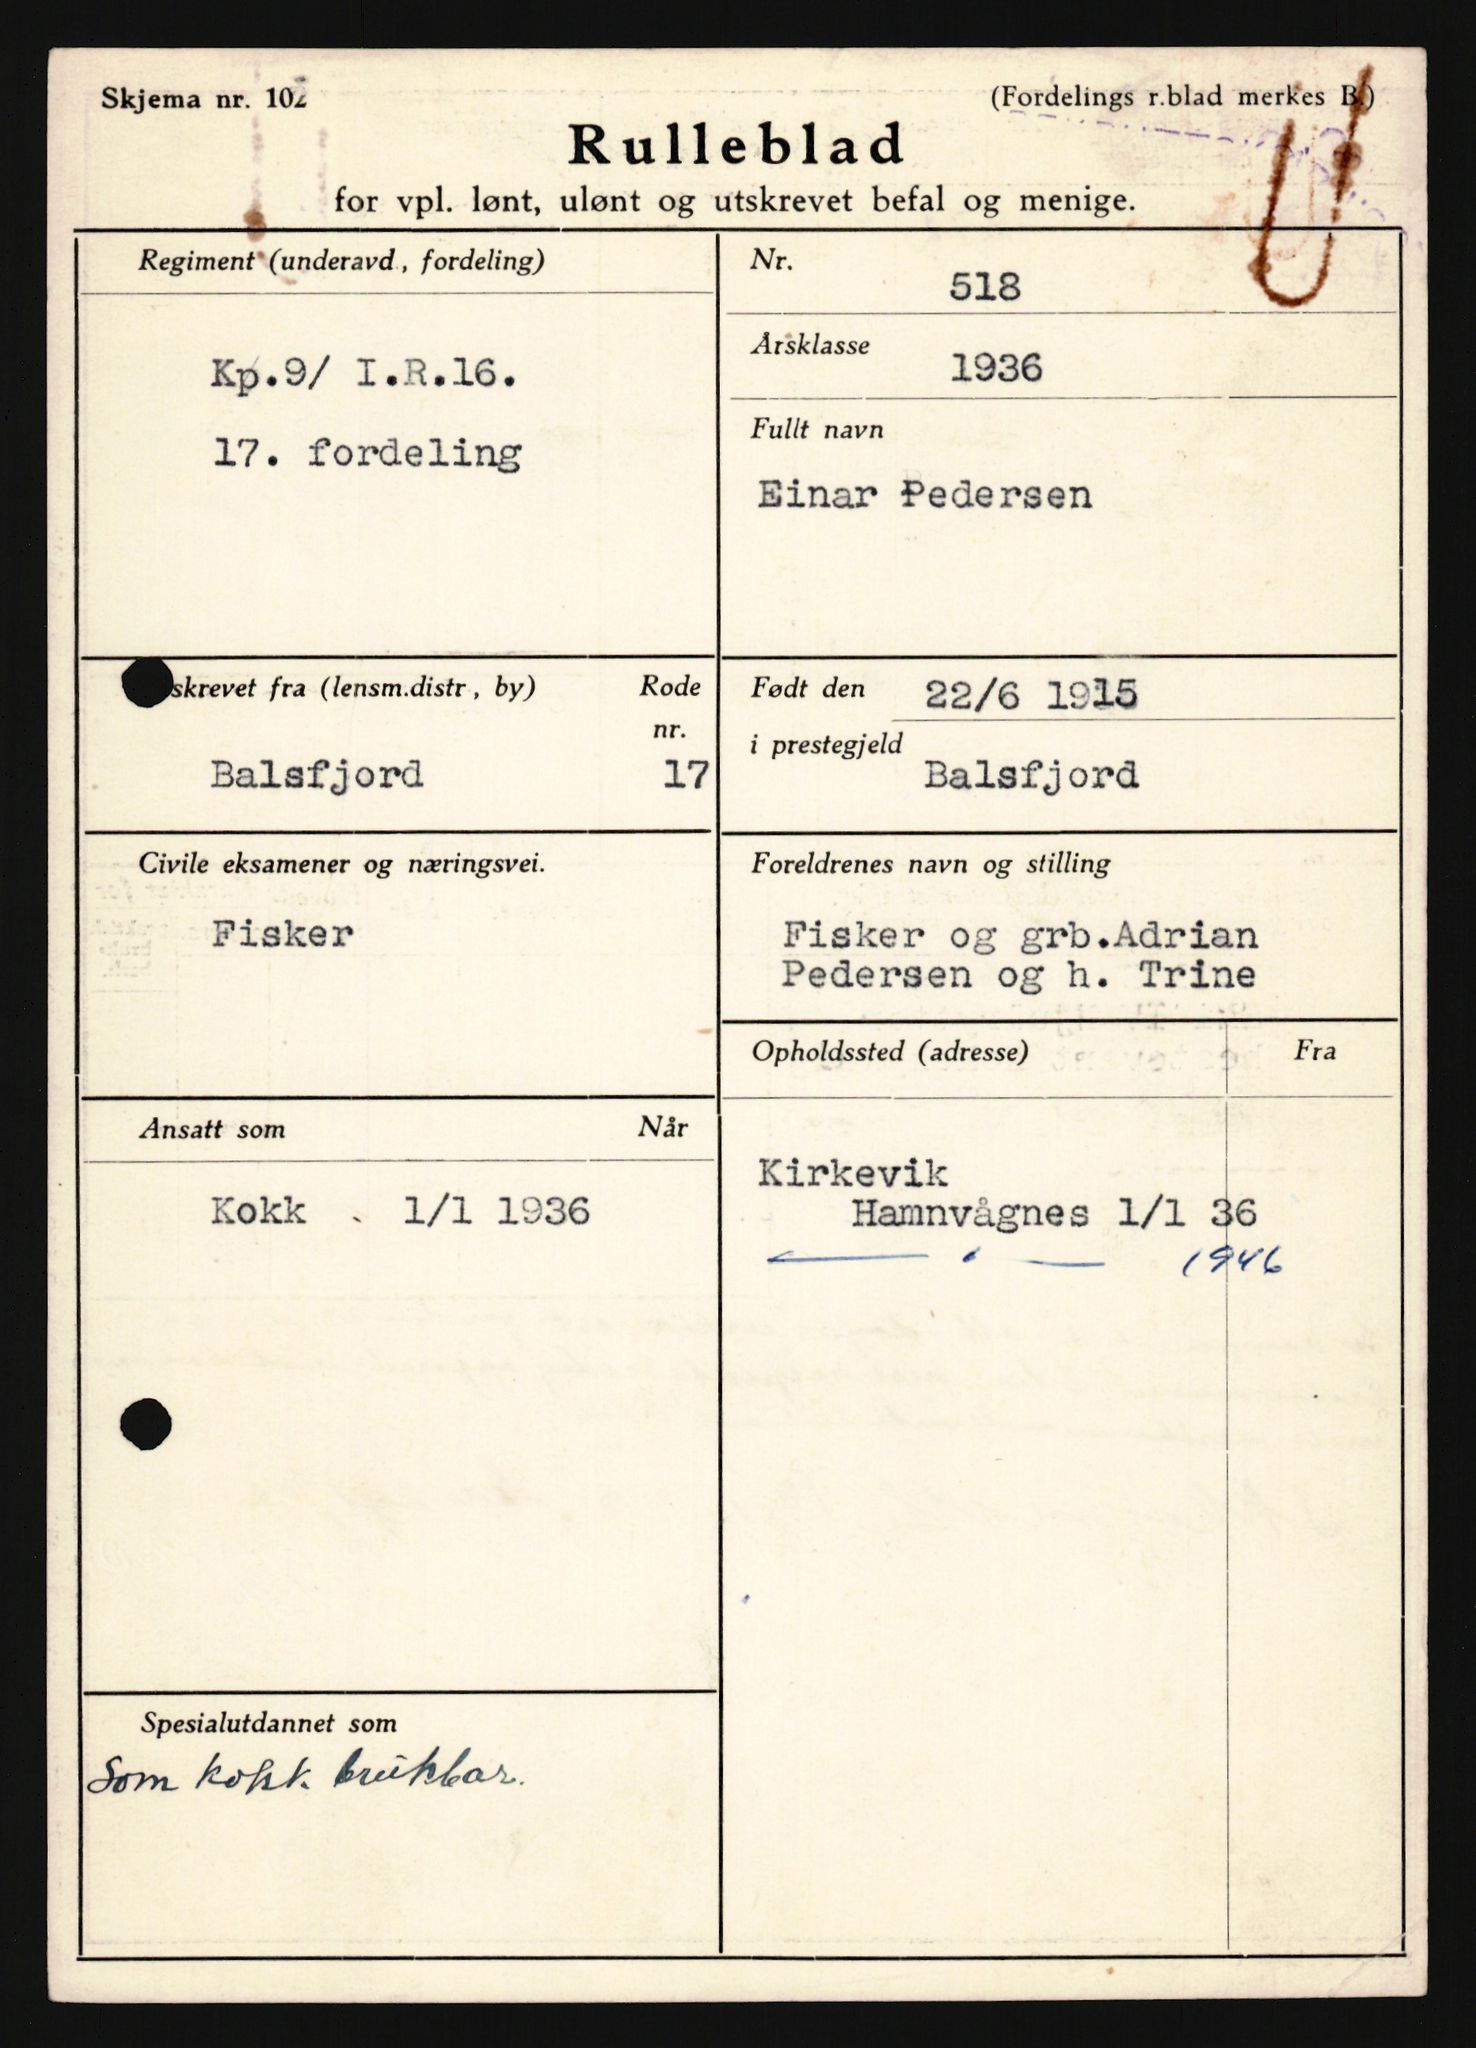 Skjema nr. 102
(Fordelings r.blad merkes B.)
Rulleblad
for vpl. lønt, ulønt og utskrevet befal og menige.
Regiment (underavd., fordeling)
Kp.9/ I.R.16.
17. fordeling
Nr.
518
Årsklasse
1936
Fullt navn
Einar Pedersen
skrevet fra (lensm.distr, by)
Rode
nr.
Balsfjord 17
Født den 22/6 1915
i prestegjeld
Balsfjord
Civile eksamener og næringsvei.
Fisker
Foreldrenes navn og stilling
Fisker og grb.Adrian
Pedersen og h. Trine
Opholdssted (adresse) Fra
Kirkevik
Hamnvågnes 1/1 36
1946
Ansatt som Når
Kokk 1/1 1936
Spesialutdannet som
Som kokk brukbar.